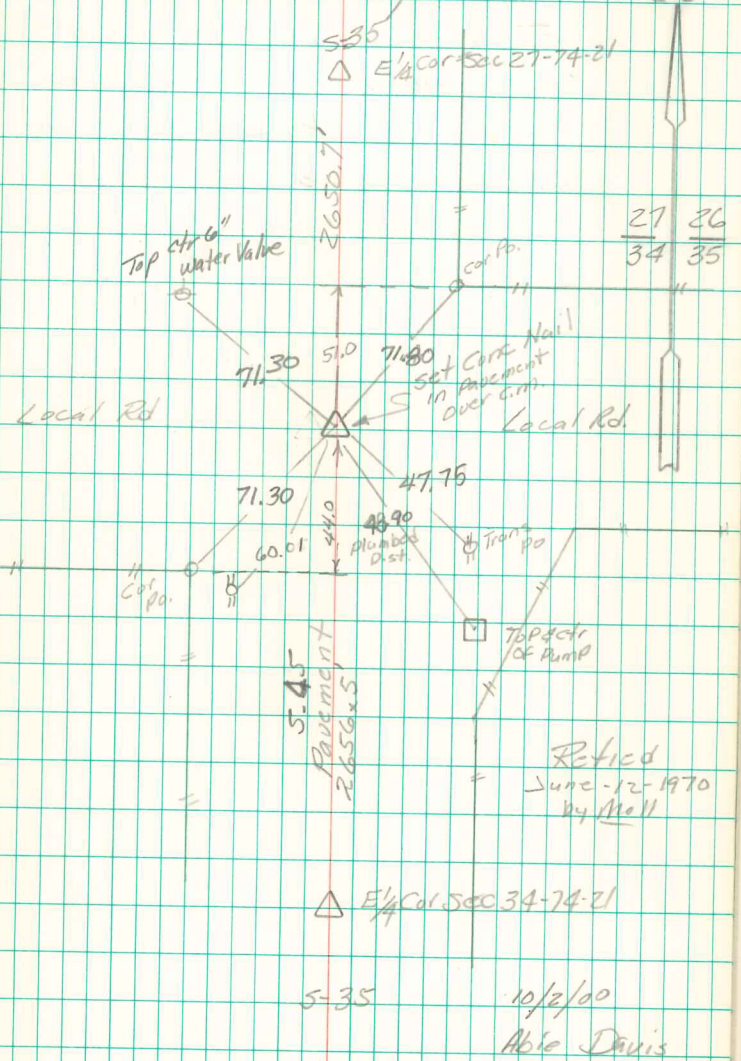 S-35
E 1/4 Cor Sec 27-74-21
2650.7'
27 26
34 35
Top ctr 6"
water Valve
Cor Po.
71.30
51.0
71.80
Set Conc Nail
in Pavement
over c.m.
Local Rd
Local Rd.
71.30
47.75
44.0
60.01
Plumbed
Dist.
Trans
po
Cor
po.
Top & ctr
Of Pump
S-45
Pavement
2656.5'
Retied
June-12-1970
by Moll
E 1/4 Cor Sec 34-74-21
S-35
10/2/00
Abie Davis